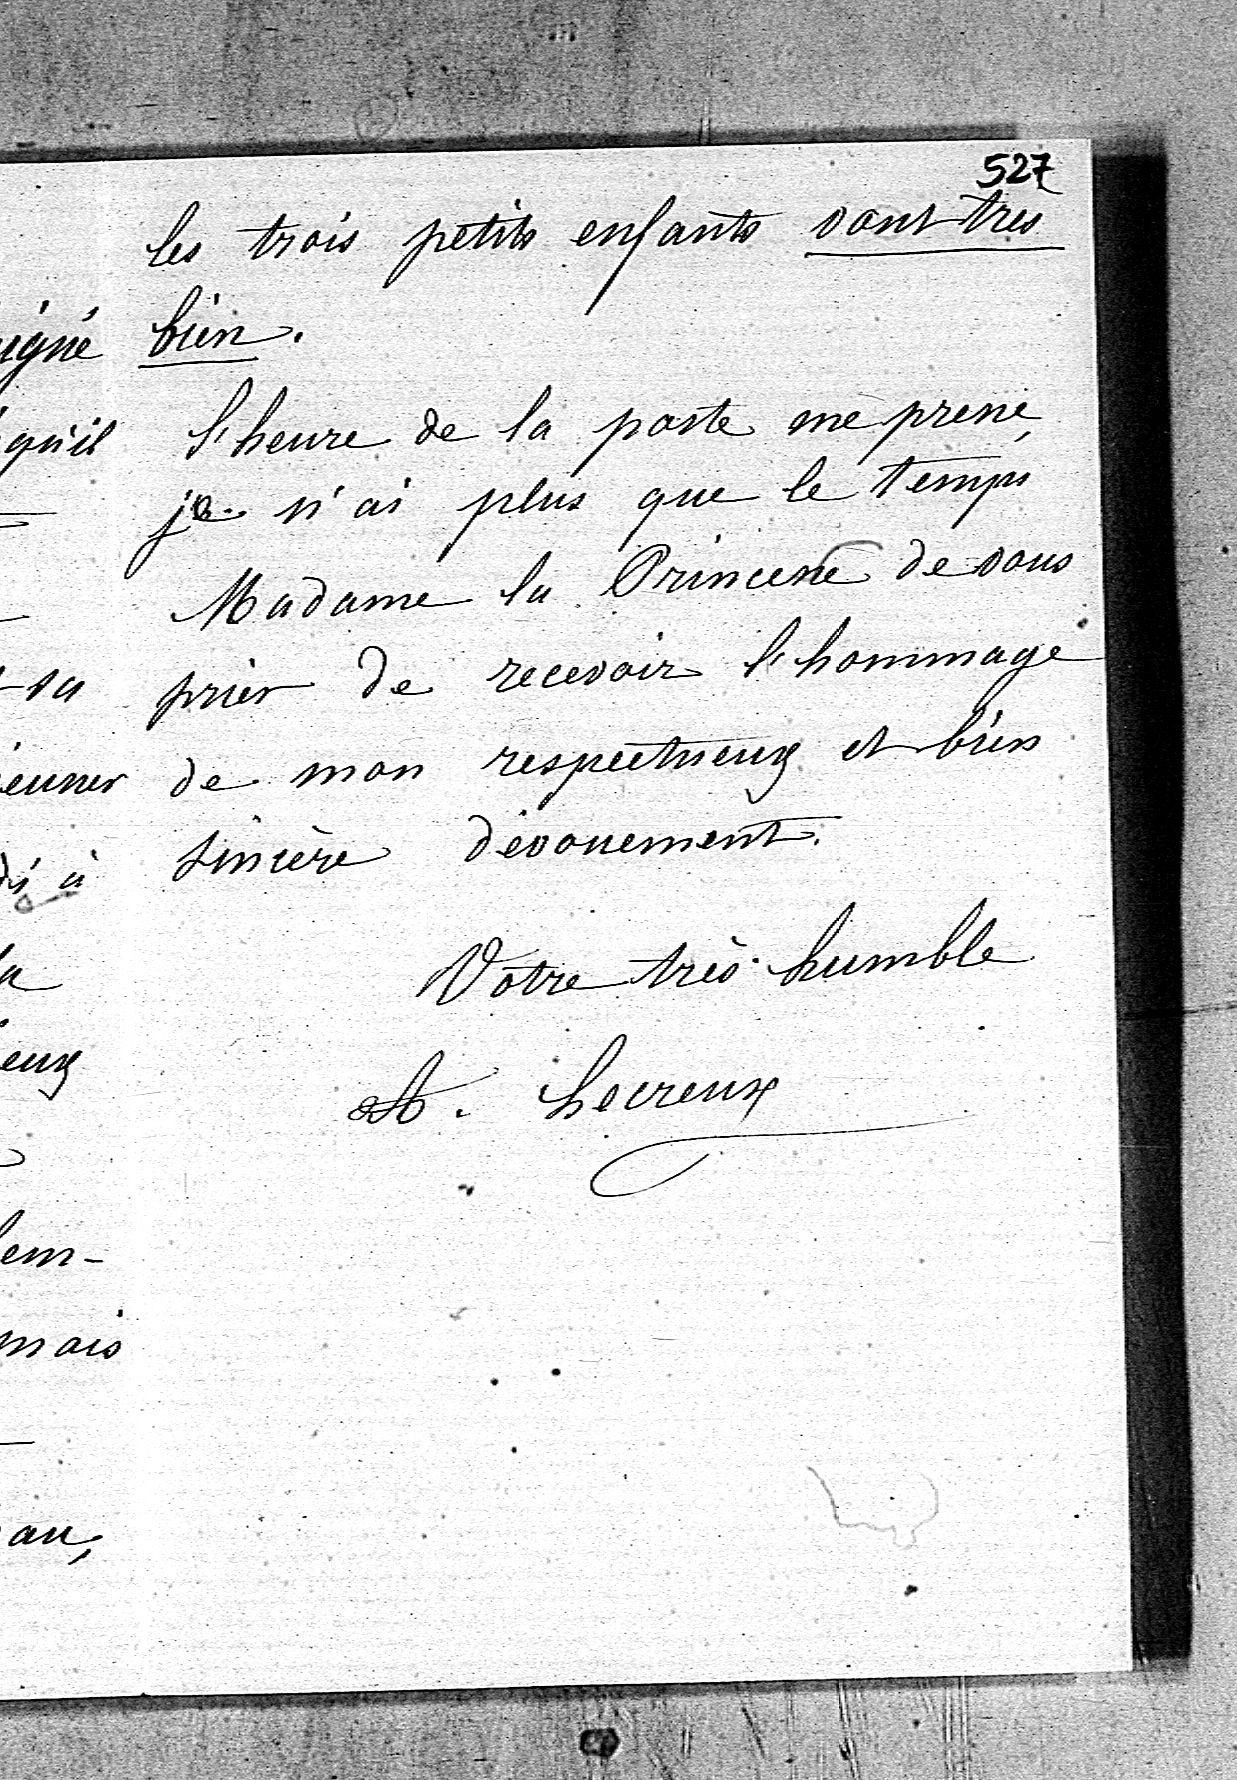 527
les trois petits enfants vont très
bien.
l'heure de la poste me presse,
je n'ai plus que le temps
Madame la Princesse de vous
prier de recevoir l'hommage
de mon respectueux et bien
sincère dévouement.
Votre très humble
A. Lecreux
igné
qu'il
sa
euner
di à
la
eux
lem-
mais
au,